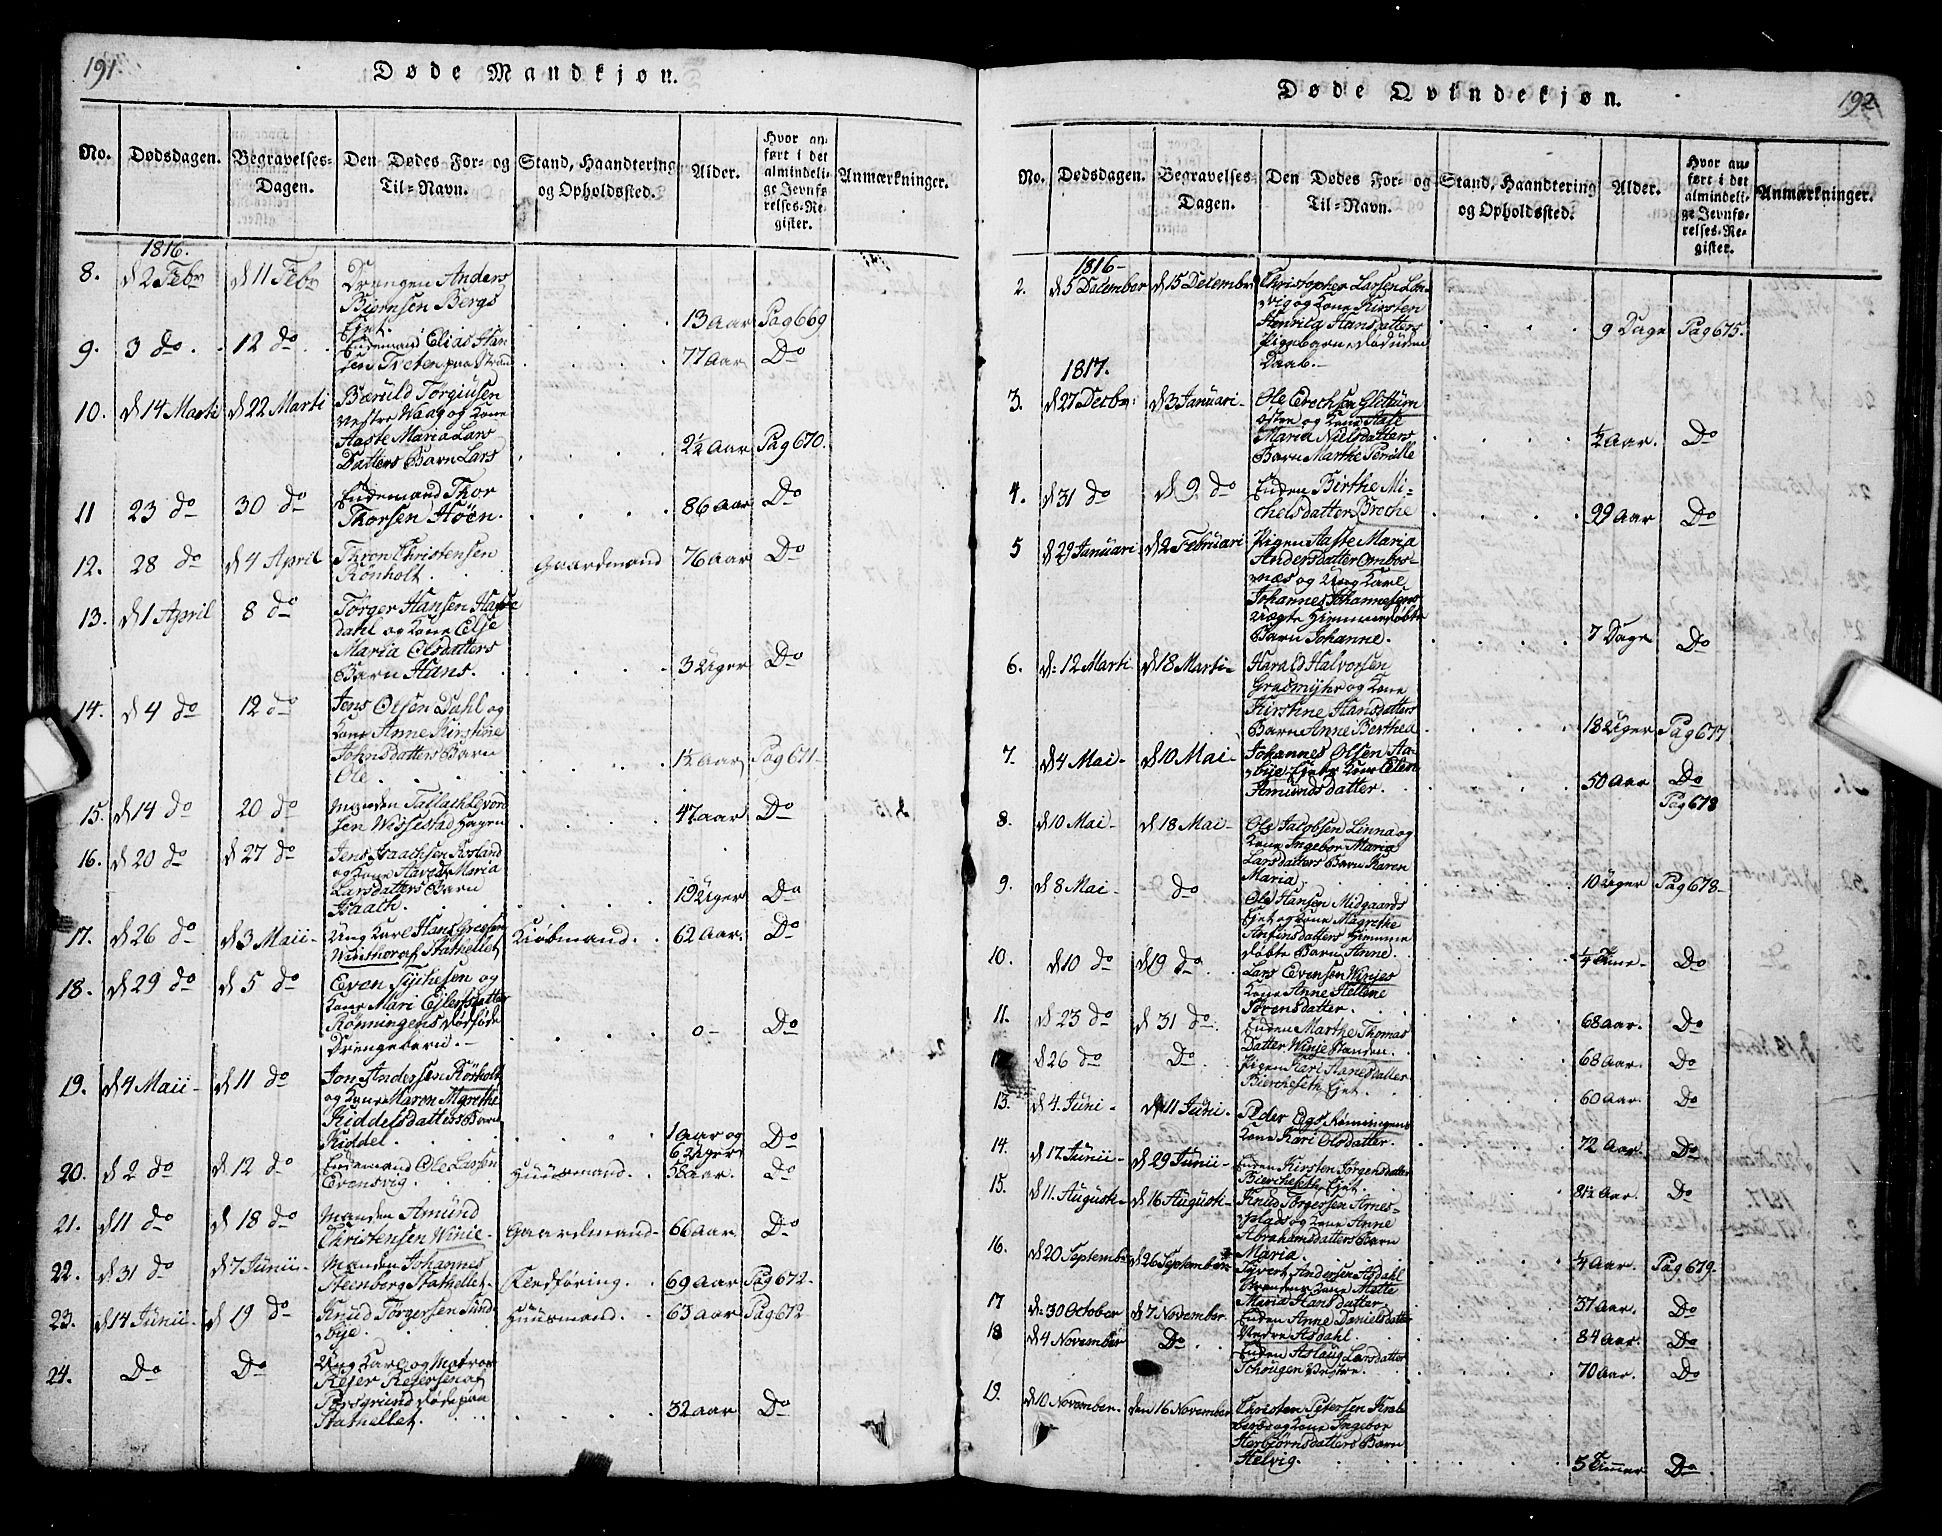 191.
Døde Mandkjøn.
No.
Dødsdagen.
Begravelses-
Dagen.
Den Dødes For- og
Til-Navn.
Stand, Haandtering
og Opholdssted.
Alder.
Hvor an-
ført i det
almindeli-
ge Jevnfø-
relses-Re-
gister.
Anmærkninger.
1816.
8. d 2 Febr d 11 Febr Drengen Anders
Biørnsen Bergs
Ejet. 13 Aar Pag 669
9. 3 do 12 do Enkemand Elias Han
sen Treten paa Strand 77 Aar Do
10. d 14 Marti d 22 Marti Bæruld Torgiusen
vestre Waag og Kone
Aaste Maria Lars
Datters Barn Lars 2½ Aar Pag 670.
11 23 do 30 do Enkemand Thor
Thorsen Höen. 86 Aar Do
12. 28 do d 4 April Thron Christensen
Rönholt. Gaardmand 76 Aar Do
13. d 1 April 8 do Torger Hansen
dahl og Kone Else
Maria Olsdatters
Barn Hans. 3 Uger Do
14. d 4 do 12 do Jens Olsen Dahl og
Kone Anne Kirstine
Johnsdatters Barn
Ole. 1½ Aar Pag 671
15. d 14 do 20 do Manden
sen 47 Aar Do
16. d 20 do d 27 do Jens Isaachsen Rosland
og Kone Maria
Larsdatters Barn
Isaach. 19 Uger Do
17. d 26 do d 3 Maii Ung Karl Hans
Winthor af Stathellet Kiöbmand. 62 Aar. Do
18. d 29 do d 5 do Even og
Kone Mari Ejlertsdatter
Rönningens dødföde
Drengebarn. 0 Do
19. d 4 Maii d 11 do Jon Andersen Rönholt
og Kone Maren Mgrethe
Kiddelsdatters Barn
Kiddel. 1 Aar og
6 Uger Do
20. d 2 do d 12 do Enkemand Ole Larsen
Evensvig. Huusmand. 58 Aar. Do
21. d 11 do d 18 do Manden Amund
Christensen Winie. Gaardmand 66 Aar Do
22. d 31 do d 7 Junii Manden Johannes
Steenborg Stathellet. Ferdføring. 69 Aar Pag 672
23. d 14 Junii d 19 do Knud Torgersen Sund
bye. Huusmand. 63 Aar Pag 672
24. Do Do Ung Karl og Matros
Rejer Rejersen af
Porsgrund døde paa
Stathellet. 32 Aar Do
192
Døde Qvindekjøn.
No.
Dødsdagen.
Begravelses-
Dagen.
Den Dødes For- og
Til-Navn.
Stand, Haandtering
og Opholdssted.
Alder.
Hvor an-
ført i det
almindeli-
ge Jevnfø-
relses-Re-
gister.
Anmærkninger.
1816
2. d 5 December d 15 December Christopher Larsen Lan-
vig og Kone Kirsten
Henrica Hansdatters
Pigebarn, død uden
Daab. 9 Dage Pag 675.
1817.
3. d 27 Decbr: d 3 Januari Ole Erochsen Glittum
østre og Kone Aase
Maria Nielsdatters
Barn Marthe Pernille ½ Aar. Do
4. d 31 do d 9 do Enken Birthe Mi-
chelsdatter Broche 99 Aar Do
5 d 29 Januari d 2 Februari Pigen Aaste Maria
Andersdatter Ombos-
næs og Ung Karl
Johannes Johannesens
Uægte Hjemmedøbte
Barn Johanne. 7 Dage Do
6. d: 12 Marti d 18 Marti Harald Halvorsen
Grasmyhr og Kone
Kirstine Hansdatters
Barn Anne Berthea 18 Uger Pag 677
7. d 4 Mai d 10 Mai Johannes Olsen Aa-
bye Ejets Kone Elen
Amundsdatter. 50 Aar Do
Pag 678
8. d 10 Mai d 18 Mai Ole Jacobsen Linna og
Kone Ingebor Maria
Larsdatters Barn Karen
Maria 10 Uger Pag 678
9. d 8 Mai do Ole Hansen Midgaards
Ejet og Kone Magrethe
Anfinsdatters Hjemme
døbte Barn Anne. ¼ Time Do
10. d 10 do d 19 do Lars Evensen Winjes
Kone Anne Hellene
Sörensdatter. 68 Aar. Do
11. d 23 do d 31 do Enken Marthe Thomas
Datter Winje Standen. 68 Aar. Do
d 26 do Do Pigen Kari Hansdatter
Biercheseth Ejet. 60 Aar. Do
13. d 4. Juni d 11 Juni Peder Rönningens
Kone Kari Olsdatter. 72 Aar. Do
14. d 17 Junii d 29 Junii Enken Kirsten Jörgensdatter
Biercheseth Ejet. 81½ Aar. Do
15. d 11. Augusti d 16 Augusti Knud Torgersen Arnes-
plads og Kone Anne
Abrahamsdatters Barn
Maria. ¼ Aar. Pag 679.
16. d 20 September d 26 September Sivert Andersen Asdahl
Kone Mette
Maria Hansdatter. 37 Aar. Do
17 d: 30 October d 7 November Enken Anne Danielsdatter
Nedre Asdahl. 84 Aar. Do
18 d 4 November Do Enken Aslaug Larsdatter
Schougen Vestre. 70 Aar. Do
19. d 10 November. den 16 November Christen Petersen
og Kone Ingebor
Herbjørnsdatters Barn
Helvig. 5 Timer Do